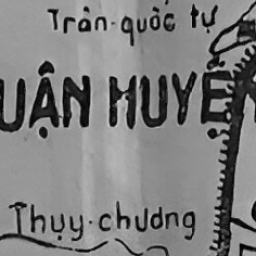 Trấn·quốc tự
UẬN HUYỆN
Thụy·chương